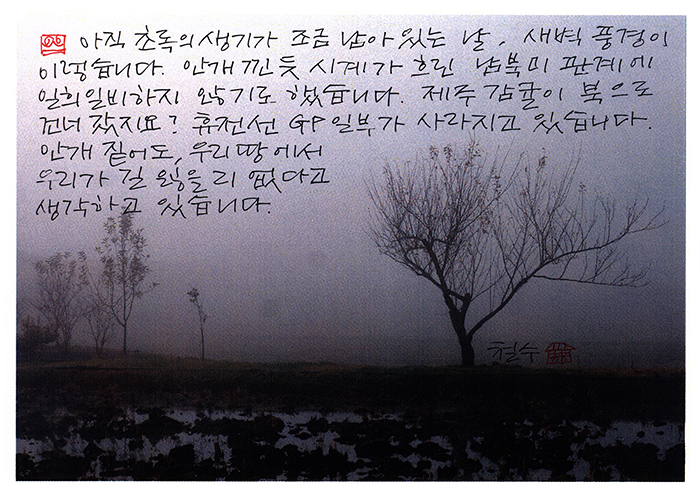 아직 초록의 생기가 조금 남아 있는 날, 새벽 풍경이
이렇습니다. 안개 낀 듯 시계가 흐린 남북미 관계에
일희일비하지 않기로 했습니다. 제주 감귤이 북으로
건너 갔지요? 휴전선 GP 일부가 사라지고 있습니다.
안개 짙어도, 우리땅에서
우리가 길 잃을 리 없다고
생각하고 있습니다.
철수